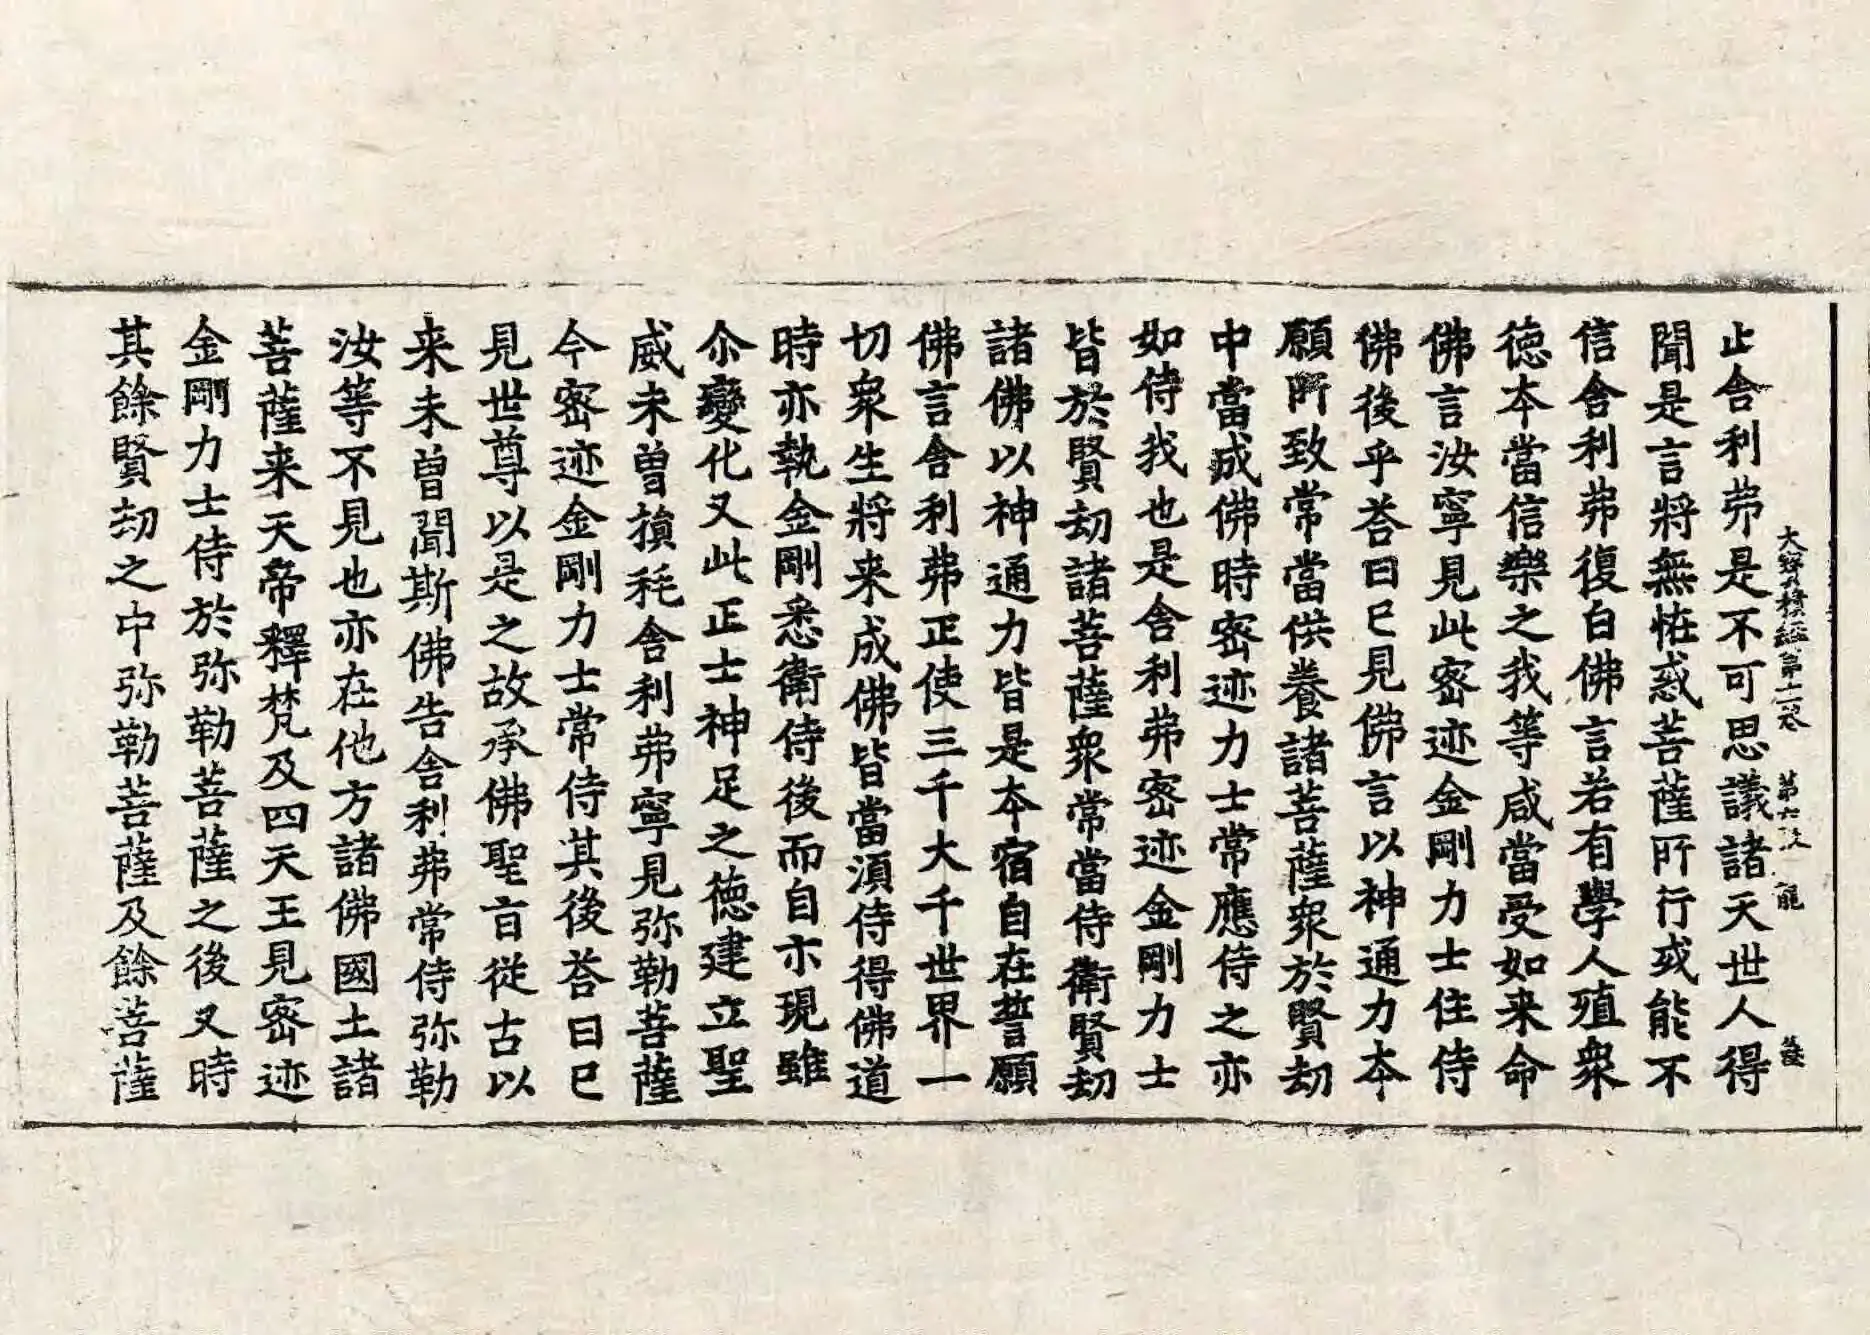 大寶積經第十二卷 第六張 龍
止舍利弗是不可思議諸天世人得
聞是言將無恠惑菩薩所行或能不
信舍利弗復白佛言若有學人殖衆
德本當信樂之我等咸當受如来命
佛言汝寧見此密迹金剛力士住侍
佛後乎荅曰已見佛言以神通力本
願所致常當供養諸菩薩衆於賢劫
中當成佛時密迹力士常應侍之亦
如侍我也是舍利弗密迹金剛力士
皆於賢劫諸菩薩衆常當侍衛賢劫
諸佛以神通力皆是本宿自在誓願
佛言舍利弗正使三千大千世界一
切衆生將来成佛皆當湏侍得佛道
時亦執金剛悉衛侍後而自亦現雖
尒變化又此正士神足之德建立聖
威未曾損耗舍利弗寧見弥勒菩薩
今密迹金剛力士常侍其後荅曰已
見世尊以是之故承佛聖㫖從古以
来未曾聞斯佛告舍利弗常侍弥勒
汝等不見也亦在他方諸佛國土諸
菩薩来天帝釋梵及四天王見密迹
金剛力士侍於弥勒菩薩之後又時
其餘賢劫之中弥勒菩薩及餘菩薩